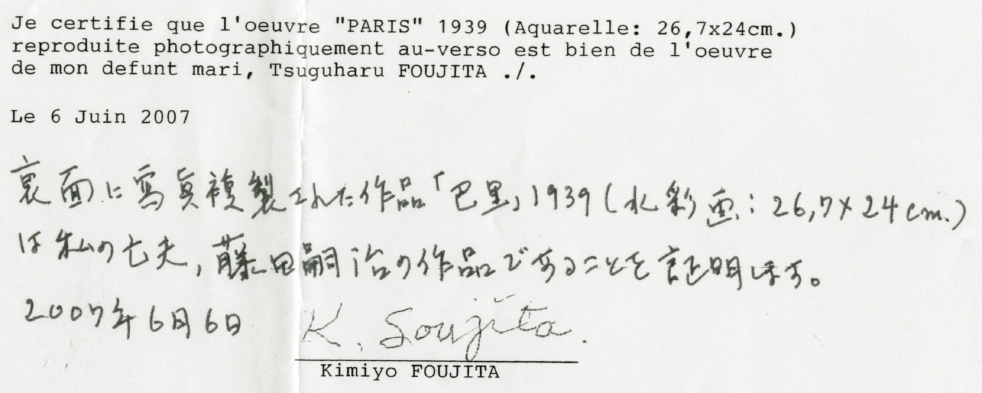 Je certifie que l'oeuvre "PARIS" 1939 (Aquarelle: 26,7x24cm.)
reproduite photographiquement au-verso est bien de l'oeuvre
de mon defunt mari, Tsuguharu FOUJITA ./.
Le 6 Juin 2007
裏面に寫真複製された作品「巴里」1939(水彩画:26,7×24cm.)
は私の亡夫,藤田嗣治の作品であることを証明します。
2007年6月6日
K. Foujita.
Kimiyo FOUJITA